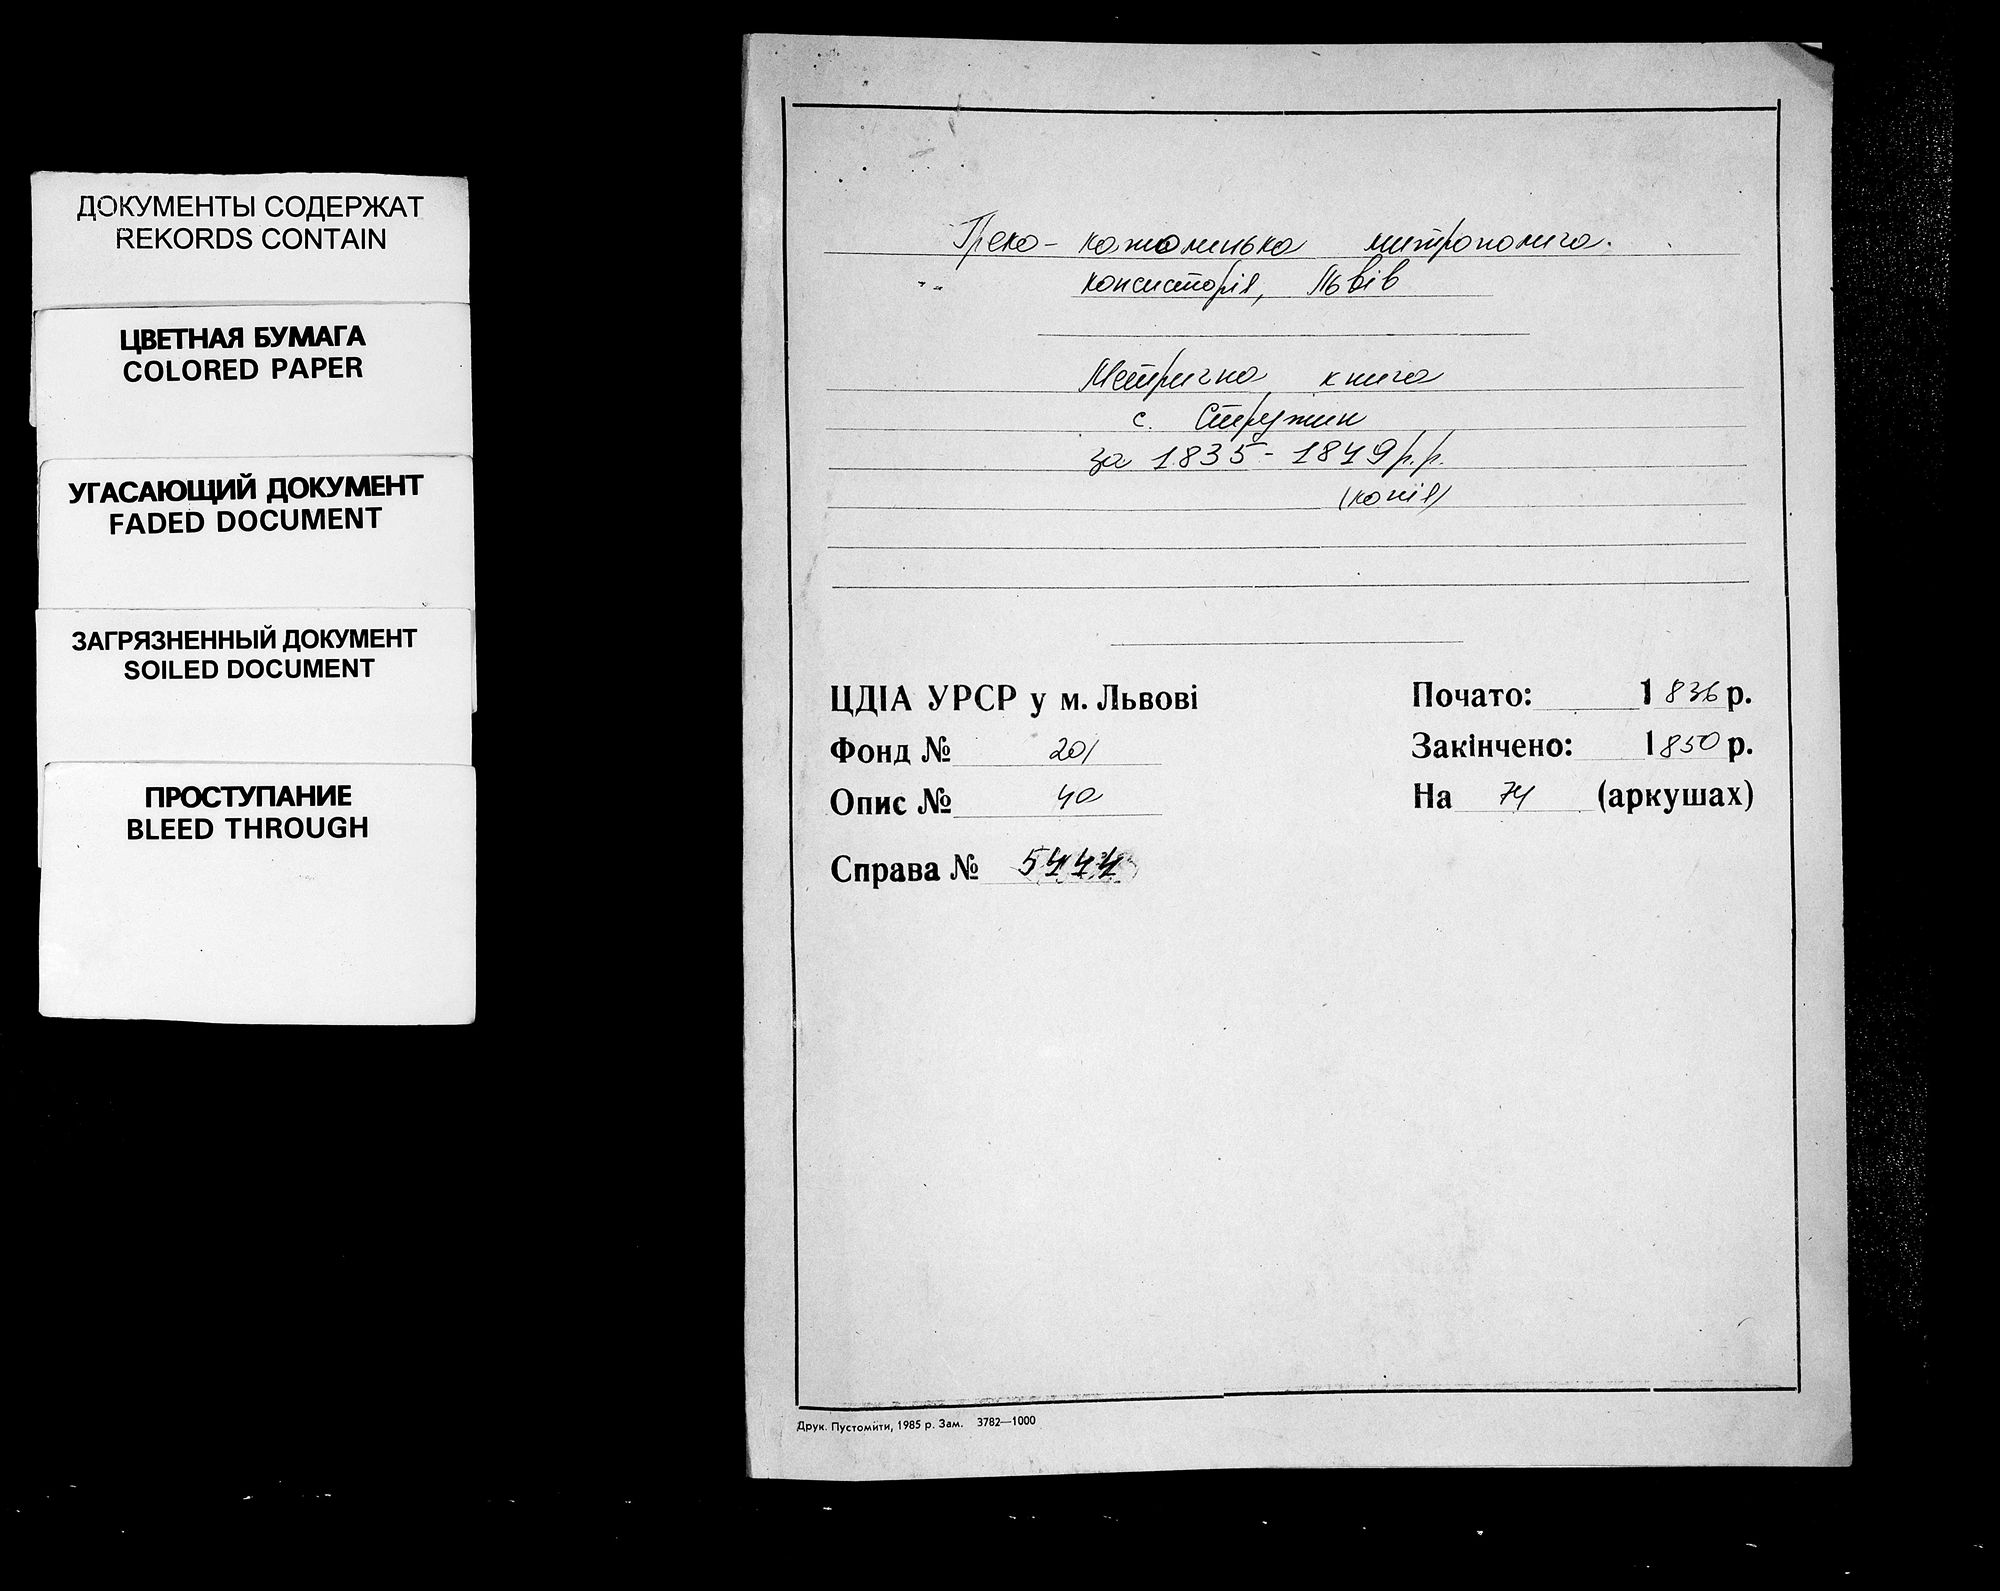 ДОКУМЕНТЫ СОДЕРЖАТ
REKORDS CONTAIN
ЦВЕТНАЯ БУМАГА
COLORED PAPER
УГАСАЮЩИЙ ДОКУМЕНТ
FADED DOCUMENT
ЗАГРЯЗНЕННЫЙ ДОКУМЕНТ
SOILED DOCUMENT
ПРОСТУПАНИЕ
BLEED THROUGH
Греко-католицька митрополича
консисторія, Львів
Метрична книга
с. Стружин
за 1835-1849 р.р.
(копія)
ЦДІА УРСР у м. Львові
Фонд № 201
Опис № 4а
Справа № 5444
Почато: 1836 р.
Закінчено: 1850 р.
На 74 (аркушах)
Друк. Пустомити, 1985 р. Зам. 3782—1000